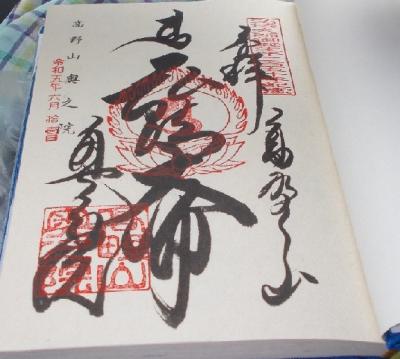 奉拝
高野山
弘法大師
高野山奥之院
令和五年六月拾
奥之院